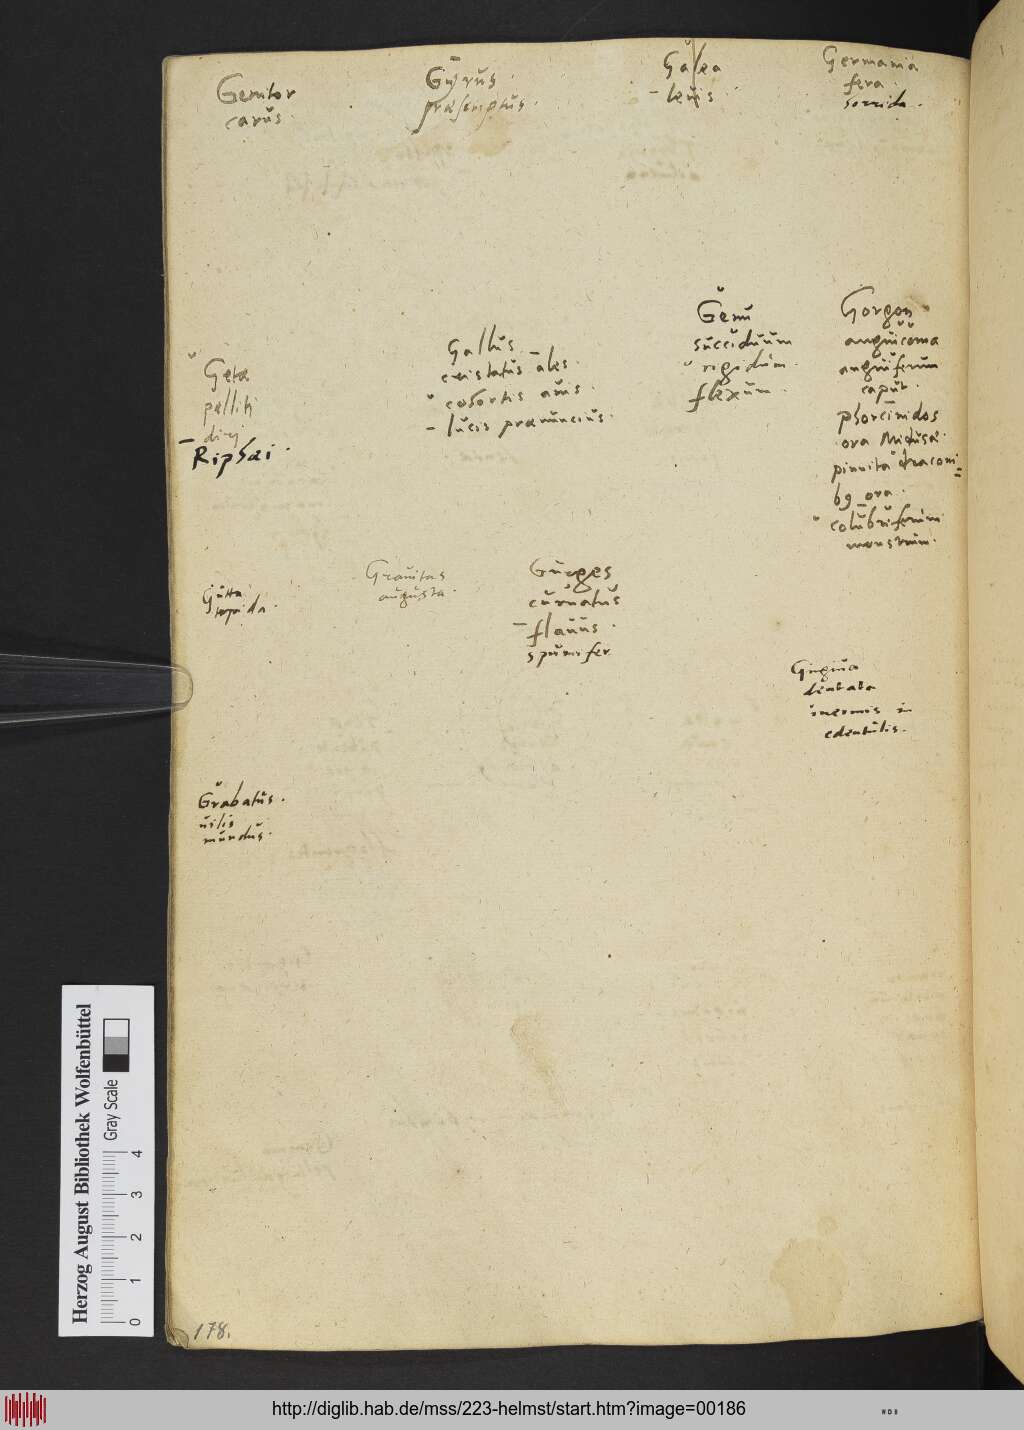 Genitor
carus.
Gyrus
præscriptus.
Galea
leuis.
Germania
fera
horrida.
Getæ
pelliti
diri
Riphæi.
Gallus
cristatus ales.
cohortis auis.
lucis prænuncius.
Genu
succiduum
rigidum.
flexum.
Gorgon
anguicoma
anguiferum
caput.
phorcinidos
ora Medusæ.
pinnita draconi=
b9 ora.
colubriferum
monstrum.
Gutta
tepida.
Grauitas
augusta.
Gurges
curuatus
flauus.
spumifer
Gingiua
dentata
inermis in
edentulis.
Grabatus.
uilis
mundus.
178.
Herzog August Bibliothek Wolfenbüttel
Gray Scale
0 1 2 3 4
http://diglib.hab.de/mss/223-helmst/start.htm?image=00186